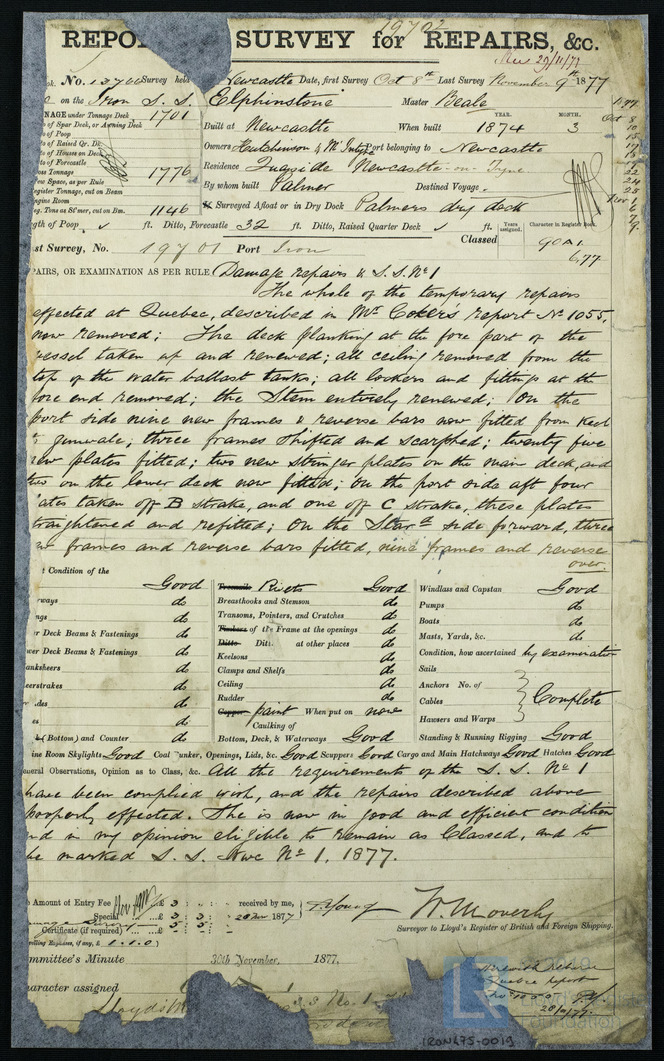 19702
REPO SURVEY for REPAIRS, &c.
29/11/77
No. 13700 Survey held Newcastle Date, first Survey Oct 8th Last Survey November 9th 1877
on the Iron S. S. Elphinstone Master Beale
NAGE under Tonnage Deck 1701
of Spar Deck, or Awning Deck
of Poop
of Raised Qr. Dk
of Houses on Deck
of Forecastle
ross Tonnage 1776
ew Space, as per Rule
egister Tonnage, cut on Beam
ngine Room
eg. Tons as St'mer, cut on Bm. 1146
Built at Newcastle When built YEAR. 1874 MONTH. 3
Owners Hutchinson & McIntyre Port belonging to Newcastle
Residence Quayside Newcastle-on-Tyne
By whom built Palmer Destined Voyage
If Surveyed Afloat or in Dry Dock Palmers dry dock
gth of Poop ft. Ditto, Forecastle 32 ft. Ditto, Raised Quarter Deck ft.
Years assigned. Character in Register Book.
Classed 90A1
6,77
st Survey, No. 19701 Port Iron
PAIRS, OR EXAMINATION AS PER RULE Damage repairs & S.S. No 1
The whole of the temporary repairs
effected at Quebec, described in Mr Coker's report No 1055,
now removed; The deck planking at the fore part of the
vessel taken up and renewed; all ceiling removed from the
top of the water ballast tanks; all lockers and fittings at the
fore end removed; the Stem entirely renewed; On the
port side nine new frames & reverse bars now fitted from keel
to gunwale; three frames shifted and scarphed; twenty five
new plates fitted; two new stringer plates on the main deck, and
two on the lower deck now fitted; On the port side aft four
ates taken off B strake, and one off C strake, these plates
traightened and refitted; On the Starbd side forward, three
w frames and reverse bars fitted, nine frames and reverse
over.
t Condition of the
Good
rways do
ngs do
er Deck Beams & Fastenings do
wer Deck Beams & Fastenings do
anksheers do
eerstrakes do
des do
es do
(Bottom) and Counter do
Treenails Rivets Good
Breasthooks and Stemson do
Transoms, Pointers, and Crutches do
Timbers of the Frame at the openings do
Ditto Ditto at other places do
Keelsons do
Clamps and Shelfs do
Ceiling do
Rudder do
Copper paint When put on now
Caulking of
Bottom, Deck, & Waterways Good
Windlass and Capstan Good
Pumps do
Boats do
Masts, Yards, &c. do
Condition, how ascertained by examination
Sails
Anchors No. of
Cables Complete
Hawsers and Warps
Standing & Running Rigging Good
ine Room Skylights Good Coal Bunker, Openings, Lids, &c. Good Scuppers Good Cargo and Main Hatchways Good Hatches Good
eneral Observations, Opinion as to Class, &c. All the requirements of the S. S. No 1
have been complied with, and the repairs described above
properly effected. She is now in good and efficient condition
nd in my opinion eligible to remain as Classed, and to
be marked S. S. Nwc No 1, 1877.
Amount of Entry Fee £ 3 : : received by me,
Special £ 3 : 3 : 20 Nov 1877 T. Young
Certificate (if required) £ 5 : 5 :
velling Expenses, if any, £ 1.1.0)
W. Moverly
Surveyor to Lloyd's Register of British and Foreign Shipping.
mmittee's Minute 30th November, 1877.
aracter assigned
Lloyds
S.S No. 1
Herewith return
Quebec report
T.Y.
LR
© 2019
Foundation
IRON475-0019